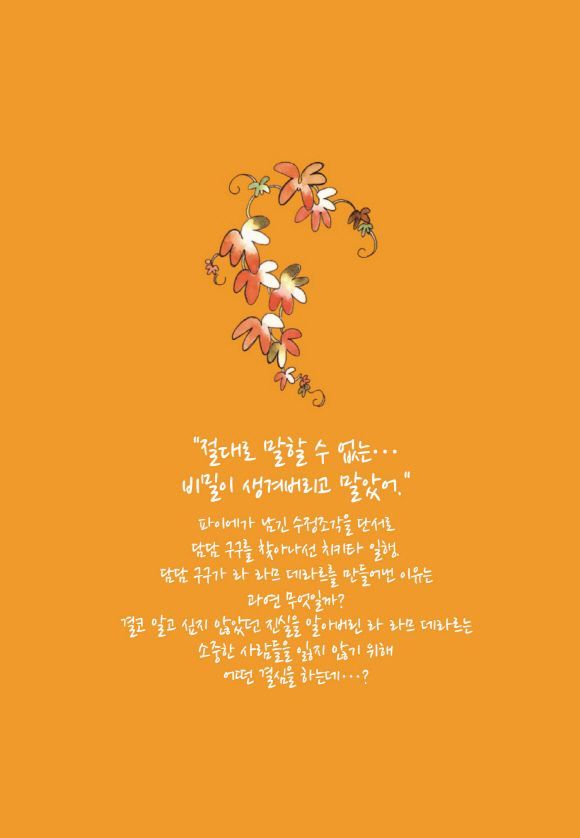 "절대로 말할 수 없는···
비밀이 생겨버리고 말았어."
파이에가 남긴 수정조각을 단서로
담담 구구를 찾아나선 치키타 일행.
담담 구구가 라 라므 데라르를 만들어낸 이유는
과연 무엇일까?
결코 알고 싶지 않았던 진실을 알아버린 라 라므 데라르는
소중한 사람들을 잃지 않기 위해
어떤 결심을 하는데···?